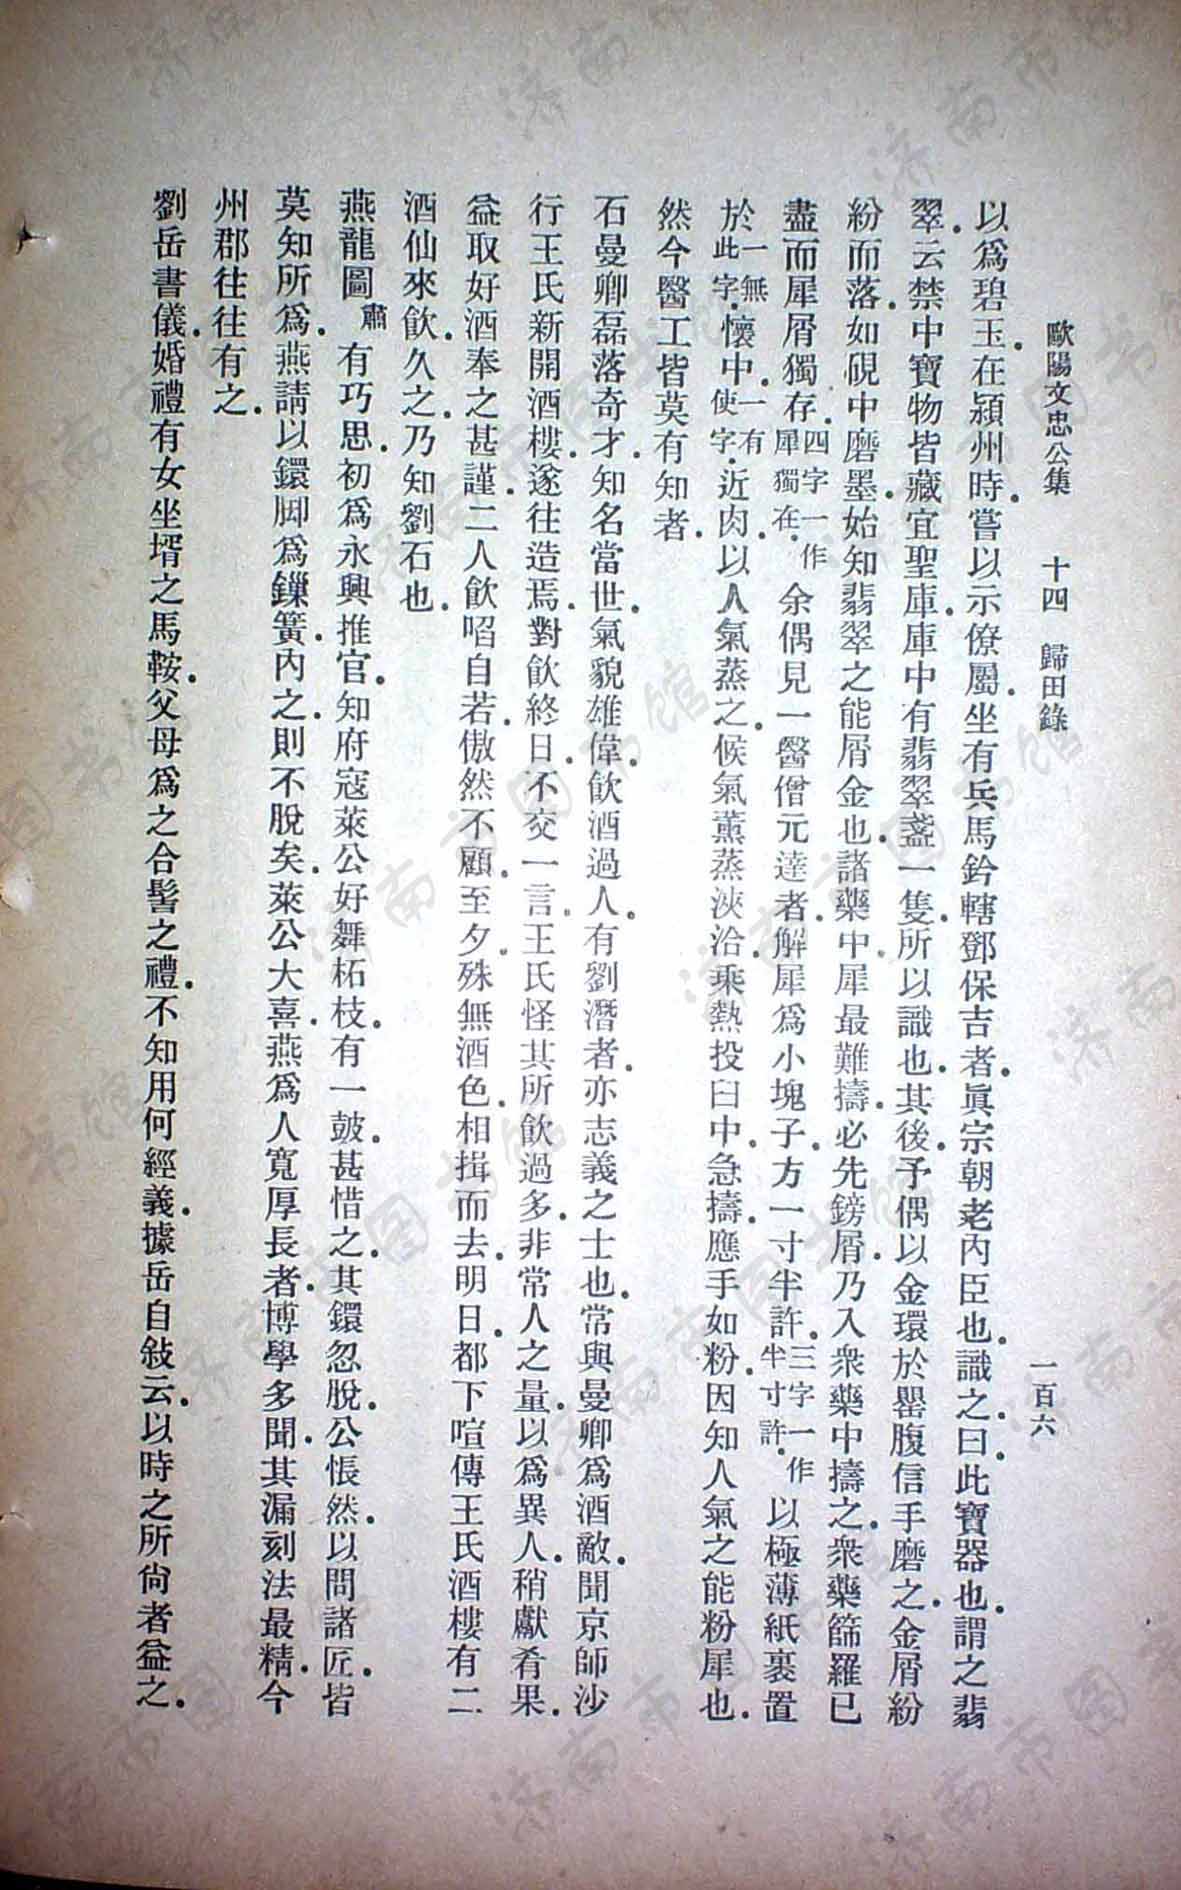 歐陽文忠公集　十四　歸田錄　一百六
以爲碧玉在潁州時嘗以示僚屬坐有兵馬鈐轄鄧保吉者眞宗朝老內臣也識之曰此寶器也謂之翡
翠云禁中寶物皆藏宜聖庫庫中有翡翠盞一隻所以識也其後予偶以金環於罌腹信手磨之金屑紛
紛而落如硯中磨墨始知翡翠之能屑金也諸藥中犀最難擣必先鎊屑乃入衆藥中擣之衆藥篩羅已
盡而犀屑獨存四字一作犀獨在余偶見一醫僧元達者解犀爲小塊子方一寸半許三字一作半寸許以極薄紙裹置
於一無此字懷中一有使字近肉以人氣蒸之候氣薰蒸浹洽乘熱投臼中急擣應手如粉因知人氣之能粉犀也
然今醫工皆莫有知者
石曼卿磊落奇才知名當世氣貌雄偉飮酒過人有劉潛者亦志義之士也常與曼卿爲酒敵聞京師沙
行王氏新開酒樓遂往造焉對飮終日不交一言王氏怪其所飮過多非常人之量以爲異人稍獻肴果
益取好酒奉之甚謹二人飮啗自若傲然不顧至夕殊無酒色相揖而去明日都下喧傳王氏酒樓有二
酒仙來飮久之乃知劉石也
燕龍圖肅有巧思初爲永興推官知府寇萊公好舞柘枝有一鼓甚惜之其鐶忽脫公悵然以問諸匠皆
莫知所爲燕請以鐶脚爲鏁簧內之則不脫矣萊公大喜燕爲人寬厚長者博學多聞其漏刻法最精今
州郡往往有之
劉岳書儀婚禮有女坐壻之馬鞍父母爲之合髻之禮不知用何經義據岳自敍云以時之所尙者益之